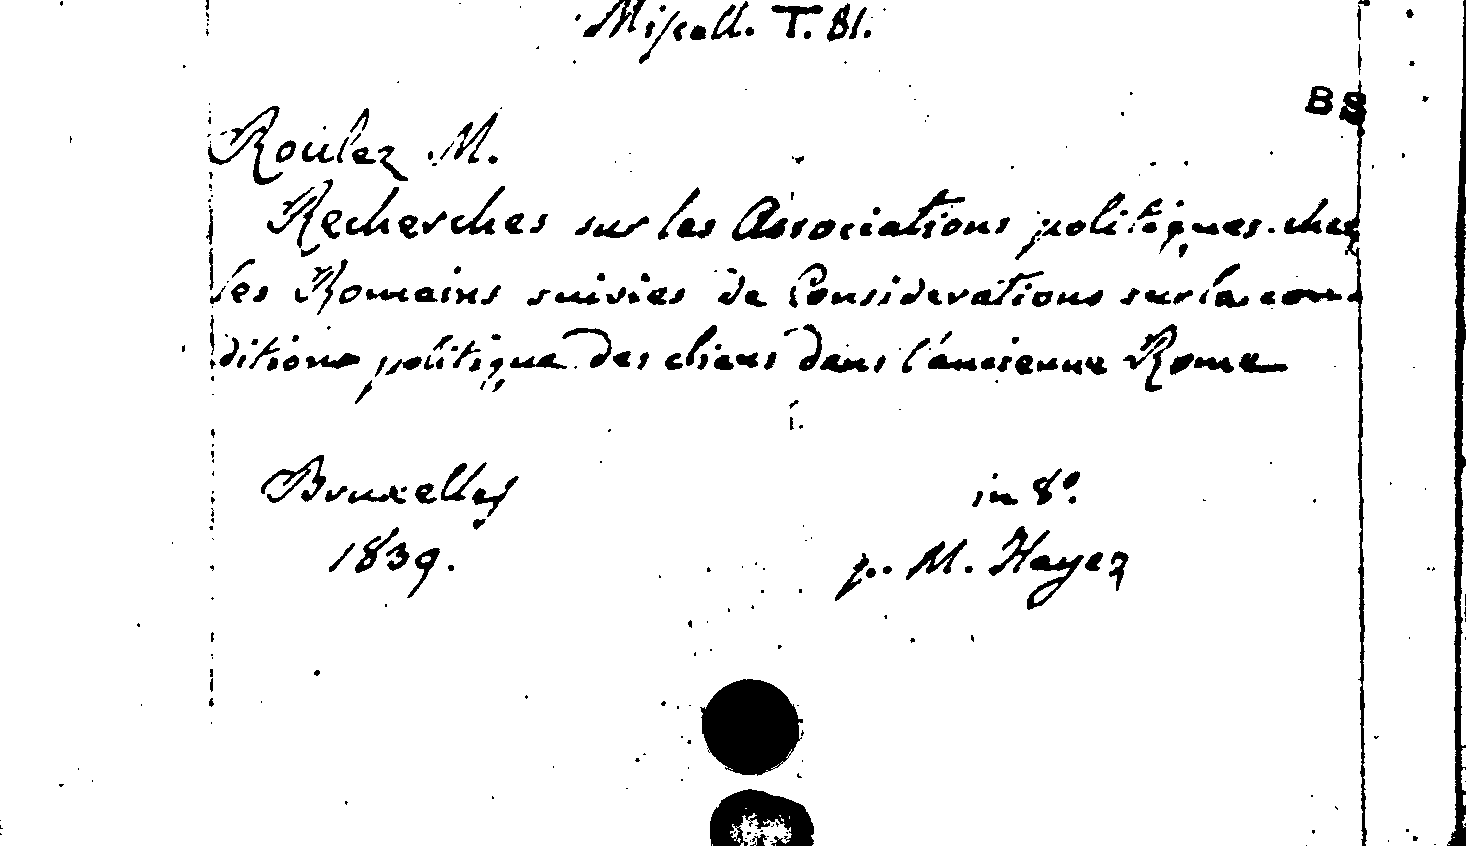 Miscell. T. 81.
BS
Roulez M.
Recherches sur les Associations politiques chez
les Romains suivies de Considerations sur la con-
dition politique des cliens dans l'ancienne Rome
Bruxelles in 8º.
1839. p. M. Hayez